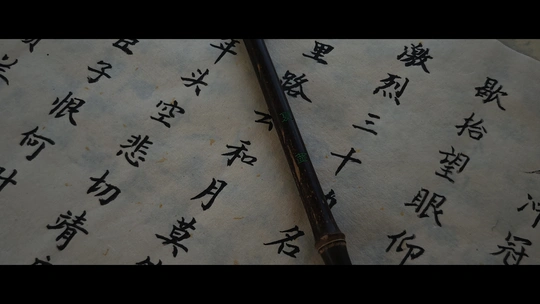 冲冠
歇抬望眼仰
激烈三十名
里路和月莫
年头空悲切靖
臣子恨何